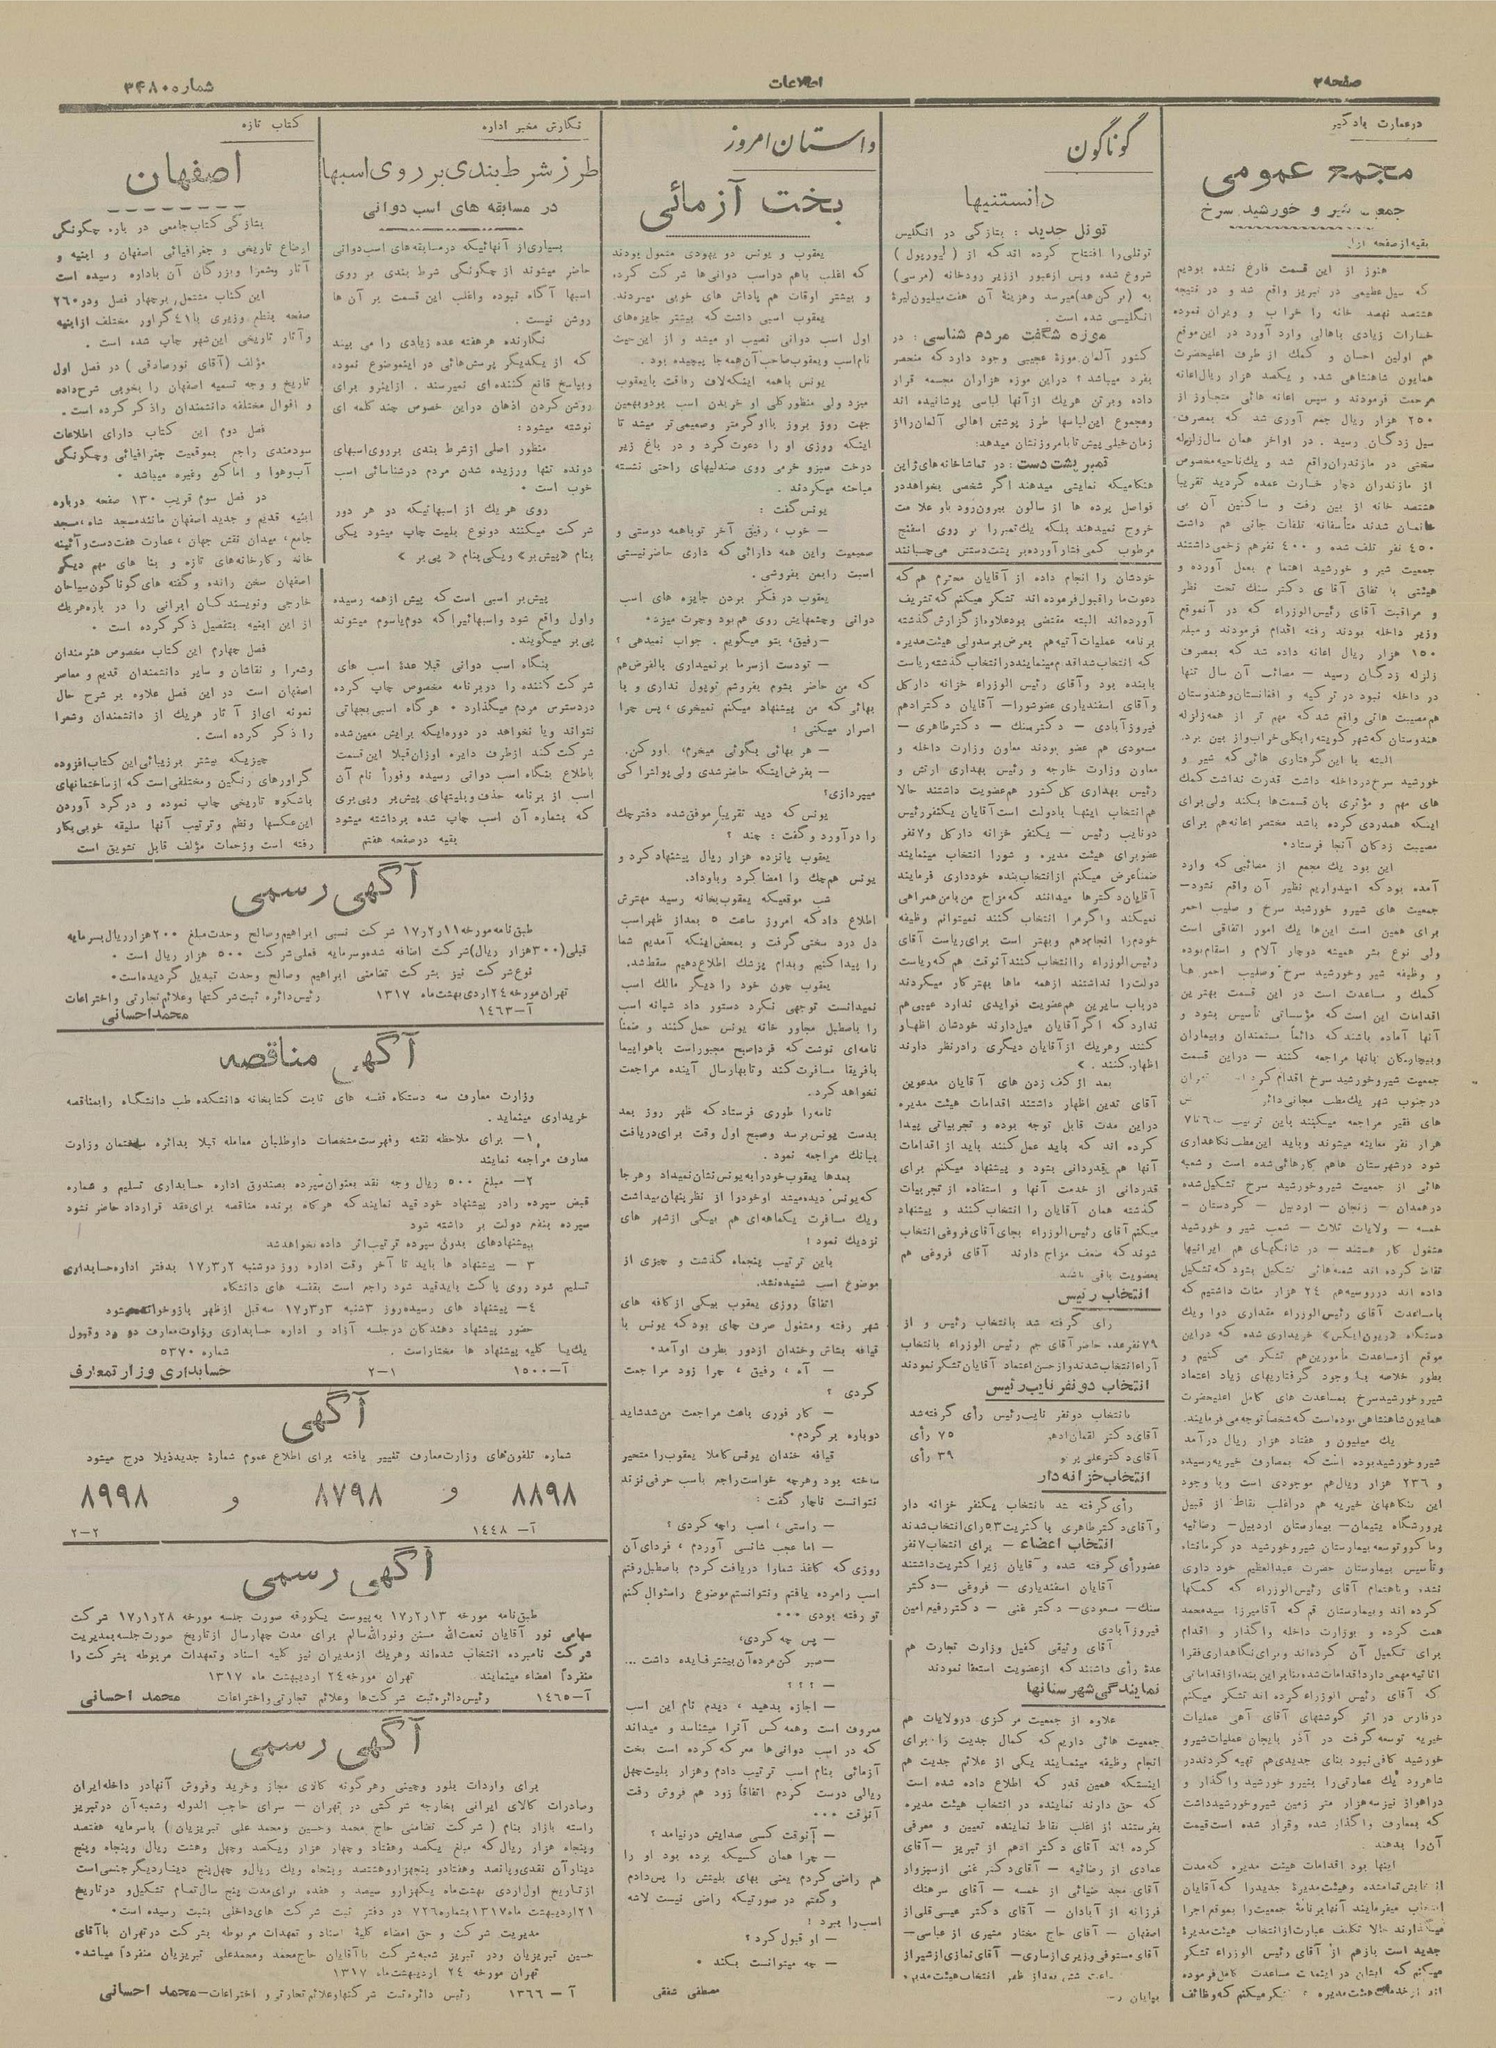 صفحه ۲
اطلاعات
شماره ۳۴۸۰
در عمارت بادگیر
مجمع عمومی
جمعیت شیر و خورشید سرخ
بقیه از صفحه اول
هنوز از این قسمت فارغ نشده بودیم
که سیل عظیمی در تبریز واقع شد و در نتیجه
هشتصد نهصد خانه را خراب و ویران نموده
خسارات زیادی باهالی وارد آورد در این موقع
هم اولین احسان و کمک از طرف اعلیحضرت
همایون شاهنشاهی شده و یکصد هزار ریال اعانه
مرحمت فرمودند و سپس اعانه هائی متجاوز از
۲۵۰ هزار ریال جمع آوری شد که بمصرف
سیل زدگان رسید . در اواخر همان سال زلزله
سختی در مازندران واقع شد و یک ناحیه مخصوص
از مازندران دچار خسارت عمده گردید تقریبا
هشتصد خانه از بین رفت و ساکنین آن بی
خانمان شدند متأسفانه تلفات جانی هم داشت
۴۵۰ نفر تلف شده و ۴۰۰ نفر هم زخمی داشتند
جمعیت شیر و خورشید اهتمام بعمل آورده و
هیئتی با تفاق آقای دکتر سنک تحت نظر
و مراقبت آقای رئیس‌الوزراء که در آنموقع
وزیر داخله بودند رفته اقدام فرمودند و مبلغ
۱۵۰ هزار ریال اعانه داده شد که بمصرف
زلزله زدگان رسید — مصائب آن سال تنها
در داخله نبود در ترکیه و افغانستان و هندوستان
هم مصیبت هائی واقع شد که مهم تر از همه زلزله
هندوستان که شهر کویته را بکلی خراب و از بین برد.
البته با این گرفتاری هائی که شیر و
خورشید سرخ در داخله داشت قدرت نداشت کمک
های مهم و مؤثری بآن قسمت‌ها بکند ولی برای
اینکه همدردی کرده باشد مختصر اعانه هم برای
مصیبت زدگان آنجا فرستاد.
این بود یک مجمع از مصائبی که وارد
آمده بود که امیدواریم نظیر آن واقع نشود—
جمعیت های شیر و خورشید سرخ و صلیب احمر
برای همین است این‌ها یک امور اتفاقی است
ولی نوع بشر همیشه دوچار آلام و اسقام بوده
و وظیفه شیر و خورشید سرخ و صلیب احمر ها
کمک و مساعدت است در این قسمت بهترین
اقدامات این است که مؤسساتی تأسیس بشود و
آنها آماده باشند که دائماً مستمندان و بیماران
و بیچارگان بآنها مراجعه کنند — در این قسمت
جمعیت شیر و خورشید سرخ اقدام کرد
در جنوب شهر یک مطب مجانی دائر
های فقیر مراجعه میکنند باین ترتیب
هزار نفر معاینه میشوند و باید این مطب نگاهداری
شود در شهرستان ها هم کارهائی شده است و شعبه
هائی از جمعیت شیر و خورشید سرخ تشکیل شده
در همدان — زنجان — اردبیل — کردستان —
خمسه — ولایات ثلاث — شعب شیر و خورشید
مشغول کار هستند — در شانگهای هم ایرانیها
تقاضا کرده اند شعبه هائی تشکیل بشود که تشکیل
داده اند در روسیه هم ۲۴ هزار منات داشتیم که
با مساعدت آقای رئیس‌الوزراء مقداری دوا و یک
دستگاه «ریون ایکس» خریداری شده که در این
موقع از مساعدت مأمورین هم تشکر می کنیم و
بطور خلاصه با وجود گرفتاریهای زیاد اعتماد
شیر و خورشید سرخ بمساعدت های کامل اعلیحضرت
همایون شاهنشاهی بوده است که شخصاً توجه می فرمایند.
یک میلیون و هفتاد هزار ریال درآمد
شیر و خورشید بوده است که بمصارف خیریه رسیده
و ۲۳۶ هزار ریال هم موجودی است و با وجود
این بنگاههای خیریه هم در اغلب نقاط از قبیل
پرورشگاه یتیمان — بیمارستان اردبیل — رضائیه
و ماکو و توسعه بیمارستان شیر و خورشید در کرمانشاه
و تأسیس بیمارستان حضرت عبدالعظیم خود داری
نشده و باهتمام آقای رئیس‌الوزراء که کمکها
کرده اند و بیمارستان قم که آقا میرزا سید محمد
همت کرده و بوزارت داخله واگذار و اقدام
برای تکمیل آن کرده‌اند و برای نگاهداری فقرا
اثاثیه مهمی دارد اقدامات شده بنابر این بنده از اقداماتی
که آقای رئیس الوزراء کرده اند تشکر میکنم
در فارس در اثر کوششهای آقای آهی عملیات
خیریه توسعه گرفت در آذر بایجان عملیات شیر و
خورشید کافی نبود بنای جدیدی هم تهیه کردند در
شاهرود یک عمارتی را بشیر و خورشید واگذار و
در اهواز نیز سه هزار متر زمین شیر و خورشید داشت
که بمعارف واگذار شده و قرار شده است قیمت
آن را بدهند
اینها بود اقدامات هیئت مدیره که مدت
نمایش تمام شده و هیئت مدیرهٔ جدید را که آقایان
میفرمایند آنها برنامهٔ جمعیت را بموقع اجرا
میگذارند حالا تکلیف عبارت از انتخاب هیئت مدیرهٔ
جدید است بازهم از آقای رئیس الوزراء تشکر
میکنم که ایشان در اینمدت مساعدت کامل فرموده
گوناگون
دانستنیها
تونل جدید : بتازگی در انگلیس
تونلی را افتتاح کرده اند که از (لیورپول)
شروع شده و پس از عبور از زیر رودخانه (مرسی)
به (برکن هد) میرسد و هزینهٔ آن هفت میلیون لیرهٔ
انگلیسی شده است .
موزه شگفت مردم شناسی : در
کشور آلمان موزهٔ عجیبی وجود دارد که منحصر
بفرد میباشد ؟ در این موزه هزاران مجسمه قرار
داده و برتن هریک از آنها لباسی پوشانیده اند
و مجموع این لباسها طرز پوشش اهالی آلمان را از
زمان خیلی پیش تا بامروز نشان میدهد:
تمبر پشت دست : در تماشاخانه های ژاپن
هنگامیکه نمایشی میدهند اگر شخصی بخواهد در
فواصل پرده ها از سالون بیرون رود باو علامت
خروج نمیدهند بلکه یک تمبر را بر روی اسفنج
مرطوب کمی فشار آورده بر پشت دستش می چسبانند
خودشان را انجام داده از آقایان محترم هم که
دعوت ما را قبول فرموده اند تشکر میکنم که تشریف
آورده‌اند البته مقتضی بود علاوه از گزارش گذشته
برنامه عملیات آتیه هم بعرض برسد ولی هیئت مدیره
که انتخاب شد اقدام مینمایند در انتخاب گذشته ریاست
با بنده بود و آقای رئیس الوزراء خزانه دار کل
و آقای اسفندیاری عضو شورا — آقایان دکتر ادهم
فیروز آبادی — دکتر سنک — دکتر طاهری —
مسعودی هم عضو بودند معاون وزارت داخله و
معاون وزارت خارجه و رئیس بهداری ارتش و
رئیس بهداری کل کشور هم عضویت داشتند حالا
هم انتخاب اینها با دولت است آقایان یکنفر رئیس
دو نایب رئیس — یکنفر خزانه دار کل و ۷ نفر
عضو برای هیئت مدیره و شورا انتخاب مینمایند
ضمناً عرض میکنم از انتخاب بنده خودداری فرمایند
آقایان دکترها میدانند که مزاج من با من همراهی
نمیکند و اگر مرا انتخاب کنند نمیتوانم وظیفه
خودم را انجام دهم و بهتر است برای ریاست آقای
رئیس الوزراء را انتخاب کنند آنوقت هم که ریاست
دولت را نداشتند از همه ماها بهتر کار میکردند
در باب سایرین هم عضویت فوایدی ندارد عیبی هم
ندارد که اگر آقایان میل دارند خودشان اظهار
کنند و هریک از آقایان دیگری را در نظر دارند
اظهار کنند . »
بعد از کف زدن های آقایان مدعوین
آقای تدین اظهار داشتند اقدامات هیئت مدیره
در این مدت قابل توجه بوده و تجربیاتی پیدا
کرده اند که باید عمل کنند باید از اقدامات
آنها هم قدردانی بشود و پیشنهاد میکنم برای
قدردانی از خدمت آنها و استفاده از تجربیات
گذشته همان آقایان را انتخاب کنند و پیشنهاد
میکنم آقای رئیس الوزراء بجای آقای فروغی انتخاب
شوند که ضعف مزاج دارند آقای فروغی هم
بعضویت باقی باشند
انتخاب رئیس
رای گرفته شد بانتخاب رئیس و از
۷۹ نفر عده حاضر آقای جم رئیس الوزراء بانتخاب
آراء انتخاب شدند و از حسن اعتماد آقایان تشکر نمودند
انتخاب دو نفر نایب رئیس
بانتخاب دونفر نایب رئیس رأی گرفته شد
آقای دکتر لقمان ادهم ۷۵ رأی
آقای دکتر علی پرتو ۳۹ رأی
انتخاب خزانه دار
رأی گرفته شد بانتخاب یکنفر خزانه دار
و آقای دکتر طاهری با کثریت ۵۳ رای انتخاب شدند
انتخاب اعضاء — برای انتخاب ۷ نفر
عضو رأی گرفته شده و آقایان زیر اکثریت داشتند
آقایان اسفندیاری — فروغی — دکتر
سنک — مسعودی — دکتر غنی — دکتر رفیع امین
فیروز آبادی
آقای وثیقی کفیل وزارت تجارت هم
عدهٔ رأی داشتند که از عضویت استعفا نمودند
نمایندگی شهرستانها
علاوه از جمعیت مرکزی در ولایات هم
جمعیت هائی داریم که کمال جدیت را برای
انجام وظیفه مینمایند یکی از علائم جدیت هم
اینستکه همین قدر که اطلاع داده شده است
که حق دارند نماینده در انتخاب هیئت مدیره
بفرستند از اغلب نقاط نماینده تعیین و معرفی
کرده اند آقای دکتر ادهم از تبریز — آقای
عمادی از رضائیه — آقای دکتر غنی از سبزوار
آقای مجد ضیائی از خمسه — آقای سرهنک
فرزانه از آبادان — آقای دکتر عیسی قلی از
اصفهان — آقای حاج مختار مشیری از عباسی—
آقای مستوفی وزیری از ساری — آقای نمازی از شیراز
ساعت شش بعد از ظهر انتخاب هیئت مدیره
داستان امروز
بخت آزمائی
یعقوب و یونس دو یهودی متمول بودند
که اغلب باهم در اسب دوانی‌ها شرکت کرده
و بیشتر اوقات هم پاداش های خوبی میبردند.
یعقوب اسبی داشت که بیشتر جایزه‌های
اول اسب دوانی نصیب او میشد و از این حیث
نام اسب و یعقوب صاحب آن همه جا پیچیده بود .
یونس باهمه اینکه لاف رفاقت با یعقوب
میزد ولی منظور کلی او خریدن اسب بود و بهمین
جهت روز بروز با او گرمتر و صمیمی‌تر میشد تا
اینکه روزی او را دعوت کرد و در باغ زیر
درخت سبز و خرمی روی صندلیهای راحتی نشسته
مباحثه میکردند .
یونس گفت :
— خوب ، رفیق آخر تو باهمه دوستی و
صمیمیت و این همه دارائی که داری حاضر نیستی
اسبت را بمن بفروشی.
یعقوب در فکر بردن جایزه های اسب
دوانی و چشمهایش روی هم بود و چرت میزد.
— رفیق، بتو میگویم . جواب نمیدهی ؟
— تو دست از سر ما بر نمیداری بالفرض هم
که من حاضر بشوم بفروشم تو پول نداری و با
بهائی که من پیشنهاد میکنم نمیخری ، پس چرا
اصرار میکنی !
— هر بهائی بگوئی میخرم، باور کن.
— بفرض اینکه حاضر شدی ولی پولش را کی
میپردازی؟
یونس که دید تقریباً موفق شده دفتر چک
را درآورد و گفت : چند ؟
یعقوب پانزده هزار ریال پیشنهاد کرد و
یونس هم چک را امضا کرد و باو داد.
شب موقعیکه یعقوب بخانه رسید مهترش
اطلاع داد که امروز ساعت ۵ بعد از ظهر اسب
دل درد سختی گرفت و بمحض اینکه آمدیم شما
را پیدا کنیم و بدام پزشک اطلاع دهیم سقط شد.
یعقوب چون خود را دیگر مالک اسب
نمیدانست توجهی نکرد دستور داد شبانه اسب
را باصطبل مجاور خانه یونس حمل کنند و ضمناً
نامه‌ای نوشت که فردا صبح مجبور است با هواپیما
بافریقا مسافرت کند و تا بهار سال آینده مراجعت
نخواهد کرد.
نامه را طوری فرستاد که ظهر روز بعد
بدست یونس برسد و صبح اول وقت برای دریافت
ببانک مراجعه نمود .
بعدها یعقوب خود را به یونس نشان نمیداد و هر جا
که یونس دیده میشد او خود را از نظر پنهان میداشت
و یک مسافرت یکماهه‌ای هم بیکی از شهر های
نزدیک نمود !
باین ترتیب پنجماه گذشت و چیزی از
موضوع اسب شنیده نشد.
اتفاقاً روزی یعقوب بیکی از کافه های
شهر رفته و مشغول صرف چای بود که یونس با
قیافه بشاش و خندان از دور بطرف او آمد.
— آه ، رفیق ، چرا زود مراجعت
کردی ؟
— کار فوری باعث مراجعت من شد شاید
دوباره برگردم.
قیافه خندان یونس کاملا یعقوب را متحیر
ساخته بود و هرچه خواست راجع باسب حرفی نزند
نتوانست ناچار گفت :
— راستی ، اسب را چه کردی ؟
— اما عجب شانسی آوردم ، فردای آن
روزی که کاغذ شما را دریافت کردم باصطبل رفتم
اسب را مرده یافتم و نتوانستم موضوع را سئوال کنم
تو رفته بودی ...
— پس چه کردی،
— صبر کن مرده آن بیشتر فایده داشت ...
— ؟ ؟ ؟
— اجازه بدهید ، دیدم نام این اسب
معروف است و همه کس آنرا میشناسد و میداند
که در اسب دوانی‌ها معرکه کرده است بخت
آزمائی بنام اسب ترتیب دادم و هزار بلیت چهل
ریالی دوست کردم اتفاقاً زود هم فروش رفت
آنوقت ...
— آنوقت کسی صدایش در نیامد ؟
— چرا همان کسیکه برده بود او را
هم راضی کردم یعنی بهای بلیتش را پس دادم
و گفتم در صورتیکه راضی نیست لاشه
اسب را ببرد !
— او قبول کرد ؟
— چه میتوانست بکند .
مصطفی شفقی
نگارش مخبر اداره
طرز شرط بندی بر روی اسبها
در مسابقه های اسب دوانی
بسیاری از آنهائیکه در مسابقه های اسب دوانی
حاضر میشوند از چگونگی شرط بندی بر روی
اسبها آگاه نبوده و اغلب این قسمت بر آن ها
روشن نیست .
نگارنده هر هفته عده زیادی را می بیند
که از یکدیگر پرسش هائی در اینموضوع نموده
و بپاسخ قانع کننده ای نمیرسند . از اینرو برای
روشن کردن اذهان در این خصوص چند کلمه ای
نوشته میشود :
منظور اصلی از شرط بندی بر روی اسبهای
دونده تنها ورزیده شدن مردم در شناسائی اسب
خوب است .
روی هر یک از اسبهائیکه دو هر دور
شرکت میکنند دونوع بلیت چاپ میشود یکی
بنام «پیش بر» و یکی بنام « پی بر »
پیش بر اسبی است که پیش از همه رسیده
و اول واقع شود و اسبهائیرا که دوم یا سوم میشوند
پی بر میگویند.
بنگاه اسب دوانی قبلا عدهٔ اسب های
شرکت کننده را در برنامه مخصوص چاپ کرده
در دسترس مردم میگذارد . هر گاه اسبی بجهاتی
نتواند و یا نخواهد در دوره ایکه برایش معین شده
شرکت کند از طرف دایره اوزان قبلا این قسمت
باطلاع بنگاه اسب دوانی رسیده و فوراً نام آن
اسب از برنامه حذف و بلیتهای پیش بر و پی بری
که بشماره آن اسب چاپ شده برداشته میشود
بقیه در صفحه هفتم
کتاب تازه
اصفهان
بتازگی کتاب جامعی در باره چگونگی
اوضاع تاریخی و جغرافیائی اصفهان و ابنیه و
آثار و شعرا و بزرگان آن باداره رسیده است
این کتاب مشتمل بر چهار فصل و در ۲۶۰
صفحه بقطع وزیری با ۴۱ گراور مختلف از ابنیه
و آثار تاریخی این شهر چاپ شده است .
مؤلف (آقای نور صادقی) در فصل اول
تاریخ و وجه تسمیه اصفهان را بخوبی شرح داده
و اقوال مختلفه دانشمندان را ذکر کرده است .
فصل دوم این کتاب دارای اطلاعات
سودمندی راجع بموقعیت جغرافیائی و چگونگی
آب و هوا و اماکن و غیره میباشد .
در فصل سوم قریب ۱۳۰ صفحه درباره
ابنیه قدیم و جدید اصفهان مانند مسجد شاه ، مسجد
جامع، میدان نقش جهان ، عمارت هفت دست و آئینه
خانه و کارخانه‌های تازه و بنا های مهم دیگر
اصفهان سخن رانده و گفته های گوناگون سیاحان
خارجی و نویسندگان ایرانی را در باره هر یک
از این ابنیه بتفصیل ذکر کرده است .
فصل چهارم این کتاب مخصوص هنرمندان
و شعرا و نقاشان و سایر دانشمندان قدیم و معاصر
اصفهان است در این فصل علاوه بر شرح حال
نمونه ای از آثار هر یک از دانشمندان و شعرا
را ذکر کرده است .
چیزیکه بیشتر بر زیبائی این کتاب افزوده
گراورهای رنگین و مختلفی است که از ساختمانهای
باشکوه تاریخی چاپ نموده و در گرد آوردن
این عکسها و نظم و ترتیب آنها سلیقه خوبی بکار
رفته است و زحمات مؤلف قابل تشویق است
آگهی رسمی
طبق نامه مورخه ۱۱ر۲ر۱۷ شرکت نسبی ابراهیم و صالح وحدت مبلغ ۲۰۰ هزار ریال بسرمایه
قبلی (۳۰۰ هزار ریال) شرکت اضافه شده و سرمایه فعلی شرکت ۵۰۰ هزار ریال است .
نوع شرکت نیز بشرکت تضامنی ابراهیم و صالح وحدت تبدیل گردیده است.
تهران مورخه ۲۴ اردی بهشت ماه ۱۳۱۷ رئیس دائره ثبت شرکتها و علائم تجارتی و اختراعات
آ–۱۴۶۳ محمد احسانی
آگهی مناقصه
وزارت معارف سه دستگاه قفسه های ثابت کتابخانه دانشکده طب دانشگاه را بمناقصه
خریداری مینماید.
۱— برای ملاحظه نقشه و فهرست مشخصات داوطلبان معامله قبلا بدائره ساختمان وزارت
معارف مراجعه نمایند
۲— مبلغ ۵۰۰ ریال وجه نقد بعنوان سپرده بصندوق اداره حسابداری تسلیم و شماره
قبض سپرده را در پیشنهاد خود قید نمایند که هر گاه برنده مناقصه برای عقد قرارداد حاضر نشود
سپرده بنفع دولت بر داشته شود
پیشنهادهای بدون سپرده ترتیب اثر داده نخواهد شد
۳ — پیشنهاد ها باید تا آخر وقت اداره روز دوشنبه ۲ر۳ر۱۷ بدفتر اداره حسابداری
تسلیم شود روی پاکت باید قید شود راجع است بقفسه های دانشگاه
۴— پیشنهاد های رسیده روز ۳ شنبه ۳ر۳ر۱۷ سه قبل از ظهر باز و خوانده میشود
حضور پیشنهاد دهندگان در جلسه آزاد و اداره حسابداری وزارت معارف در رد و قبول
یک یا کلیه پیشنهاد ها مختار است . شماره ۵۳۷۰
آ–۱۵۰۰ ۲–۱ حسابداری وزارتمعارف
آگهی
شماره تلفون‌های وزارت معارف تغییر یافته برای اطلاع عموم شمارهٔ جدید ذیلا درج میشود
۸۸۹۸ و ۸۷۹۸ و ۸۹۹۸
آ–۱۴۴۸ ۲–۲
آگهی رسمی
طبق نامه مورخه ۱۳ر۲ر۱۷ به پیوست یکورقه صورت جلسه مورخه ۲۸ر۱ر۱۷ شرکت
سهامی نور آقایان نعمت‌الله مسنن و نورالله سالم برای مدت چهار سال از تاریخ صورت جلسه بمدیریت
شرکت نامبرده انتخاب شده‌اند و هر یک از مدیران نیز کلیه اسناد و تعهدات مربوطه بشرکت را
منفرداً امضاء مینمایند تهران مورخه ۲۴ اردیبهشت ماه ۱۳۱۷
آ–۱۴۶۵ رئیس دائره ثبت شرکت‌ها و علائم تجارتی و اختراعات محمد احسانی
آگهی رسمی
برای واردات بلور و چینی و هر گونه کالای مجاز و خرید و فروش آنها در داخله ایران
و صادرات کالای ایرانی بخارجه شرکتی در تهران — سرای حاجب الدوله و شعبه آن در تبریز
راسته بازار بنام (شرکت تضامنی حاج محمد و حسین و محمد علی تبریزیان) با سرمایه هفتصد
و پنجاه هزار ریال که مبلغ یکصد و هفتاد و چهار هزار و یکصد و چهل و هشت ریال و پنجاه و پنج
دینار آن نقدی و پانصد و هفتاد و پنجهزار و هشتصد و پنجاه و یک ریال و چهل پنج دینار دیگر جنسی است
از تاریخ اول اردی بهشت ماه یکهزار و سیصد و هفده برای مدت پنج سال تمام تشکیل و در تاریخ
۲۱ اردیبهشت ماه ۱۳۱۷ بشماره ۷۲۶ در دفتر ثبت شرکت های داخلی بثبت رسیده است .
مدیریت شرکت و حق امضاء کلیهٔ اسناد و تعهدات مربوطه بشرکت در تهران با آقای
حسین تبریزیان و در تبریز شعبه شرکت با آقایان حاج محمد و محمد علی تبریزیان منفرداً میباشد.
تهران مورخه ۲۴ اردیبهشت ماه ۱۳۱۷
آ – ۱۳۶۶ رئیس دائره ثبت شرکتها و علائم تجارتی و اختراعات—محمد احسانی